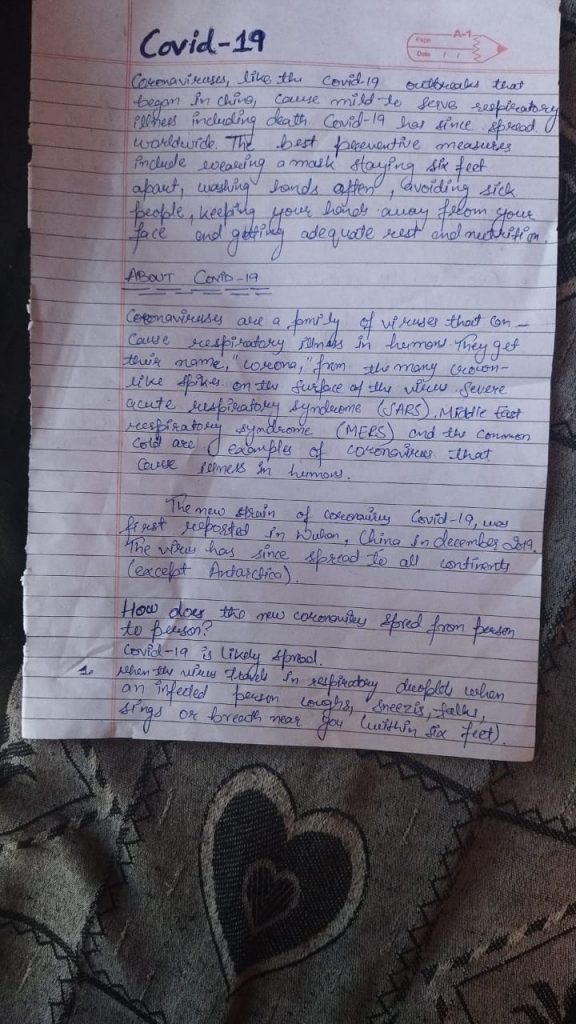 Covid-19
A-1
Page
Date / /
Coronaviruses, like the covid-19 outbreaks that
began in china, cause mild to serve respiratory
illness including death. Covid-19 has since spread
worldwide. The best preventive measures
include wearing a mask staying six feet
apart, washing hands often, avoiding sick
people, keeping your hands away from your
face and getting adequate rest and nutrition.
ABOUT COVID-19
Coronaviruses are a family of viruses that can -
cause respiratory illness in humans. They get
their name, "corona," from the many crown-
like spikes on the surface of the virus. Severe
acute respiratory syndrome (SARS), Middle East
respiratory syndrome (MERS) and the common
cold are examples of coronavirus that
cause illness in humans.
The new strain of coronavirus Covid-19, was
first reported in Wuhan, China in december 2019.
The virus has since spread to all continents
(except Antarctica).
How does the new coronavirus spred from person
to person?
Covid-19 is likely spread.
1. when the virus travels in respiratory droplds when
an infected person coughs, sneezis, talks,
sings or breath near you (within six feet).